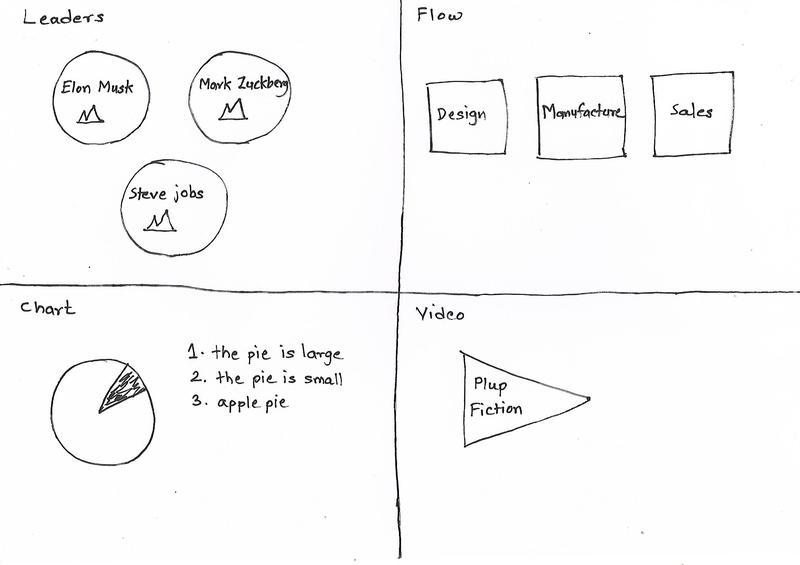 Leaders
Elon Musk
Mark Zuckberg
Steve jobs
Flow
Design
Manufacture
Sales
Chart
1. the pie is large
2. the pie is small
3. apple pie
Video
Plup
Fiction